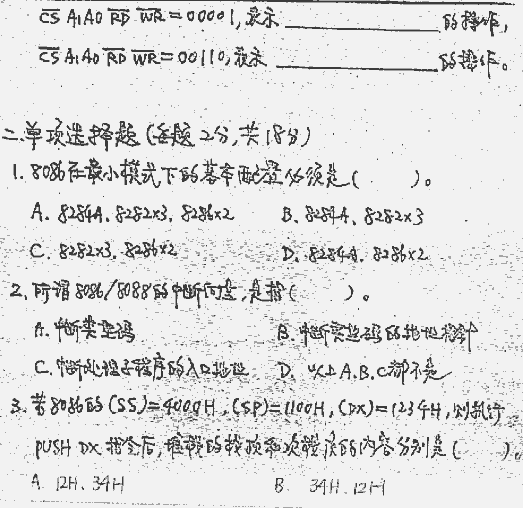 CS A1A0 RD WR = 00001, 表示 ____________ 的操作,
CS A1A0 RD WR = 00110, 表示 ____________ 的操作。
二. 单项选择题 (每题2分, 共18分)
1. 8086在最小模式下的基本配置必须是 (      )。
A. 8284A, 8282×3, 8286×2      B. 8284A, 8282×3
C. 8282×3, 8286×2      D. 8284A, 8286×2
2. 所谓8086/8088的中断向量, 是指 (      )。
A. 中断类型码      B. 中断类型码的地址指针
C. 中断处理子程序的入口地址      D. 以上A.B.C都不是
3. 若8086的 (SS)=4000H, (SP)=1100H, (DX)=1234H, 则执行
PUSH DX 指令后, 堆栈的栈顶和次栈顶的内容分别是 (      )。
A. 12H, 34H      B. 34H, 12H